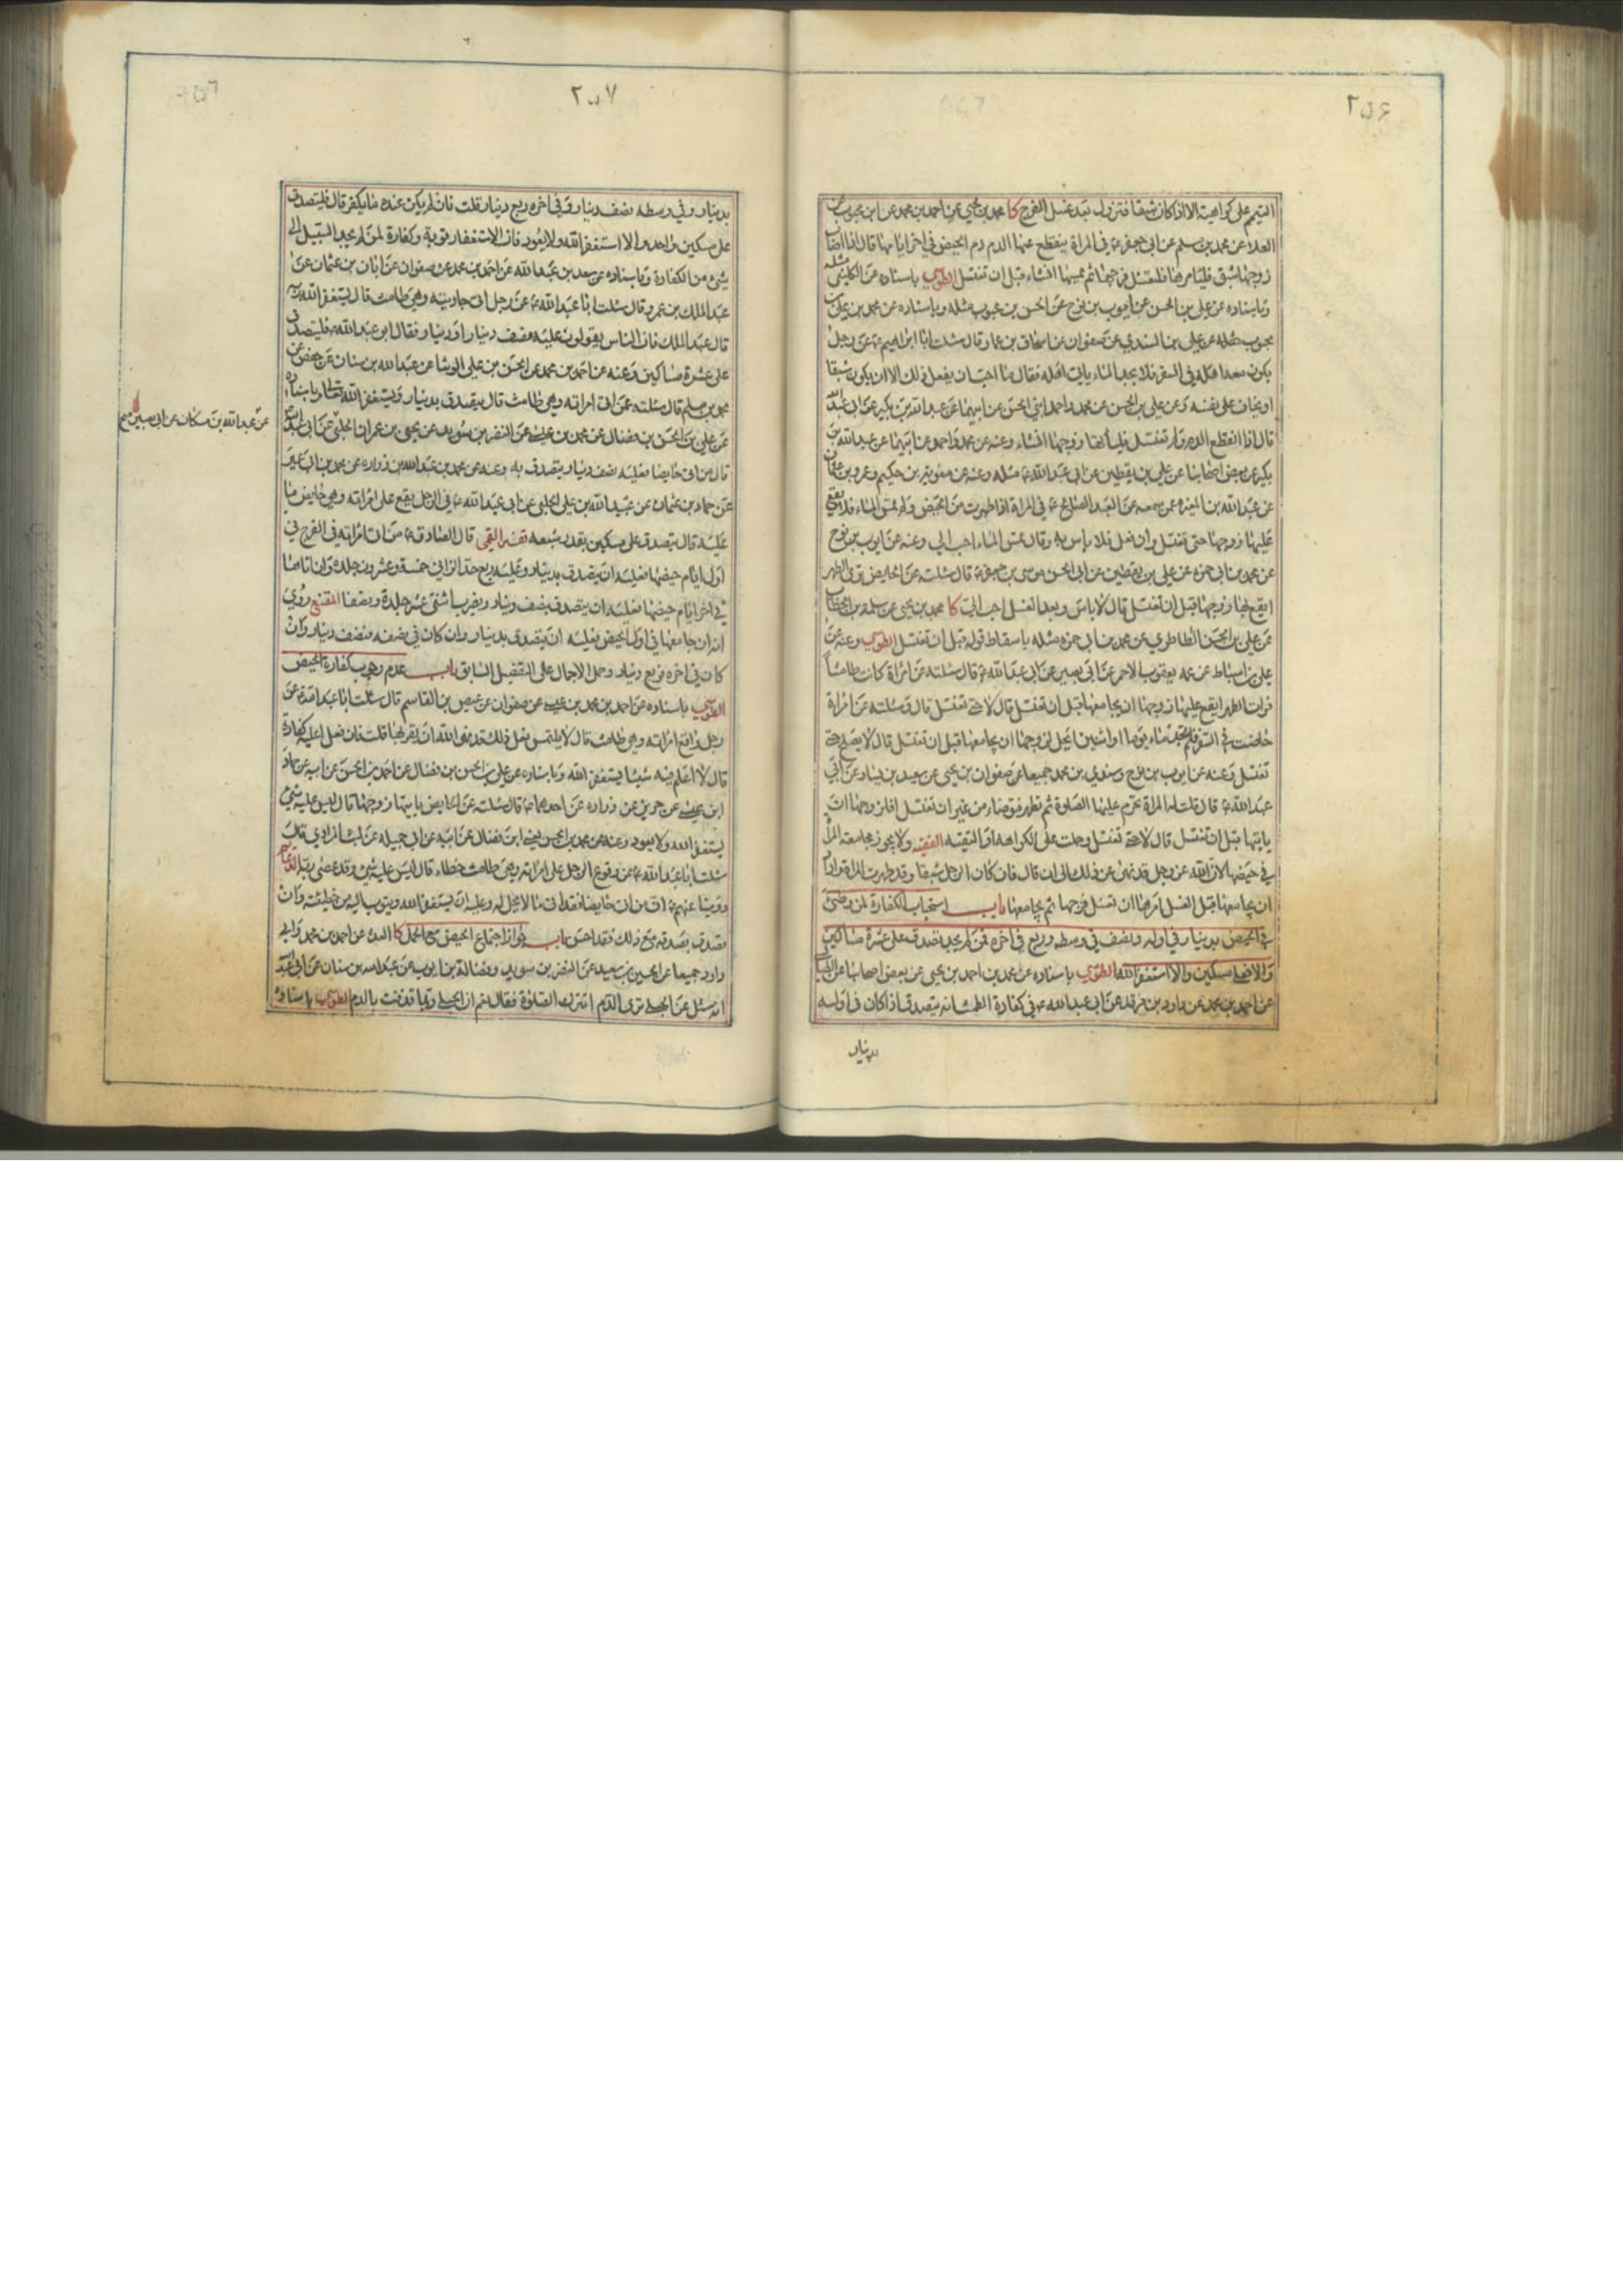 ٢٥۶
التيمم على كراهية الا اذا كان شبقا فتزول بعد غسل الفرج كا محمد بن يحيى عن احمد بن محمد عن ابن محبوب عن
العلاء عن محمد بن مسلم عن ابى جعفر ع في المراة ينقطع عنها الدم دم الحيض في اخر ايامها قال اذا اصاب
زوجها شبق فليامرها فلتغسل فرجها ثم يمسها ان شاء قبل ان تغتسل الطوسي باسناده عن الكليني مثله
وباسناده عن علي بن الحسن عن ايوب بن نوح عن الحسن بن محبوب مثله وباسناده عن محمد بن علي بن
محبوب عن علي بن السندي عن صفوان عن اسحاق بن عمار قال سئلت ابا ابراهيم ع عن رجل
يكون معه اهله في السفر فلا يجد الماء ياتي اهله فقال ما احب ان يفعل ذلك الا ان يكون شبقا
او يخاف على نفسه وعن علي بن الحسن عن محمد واحمد ابني الحسن عن ابيهما عن عبد الله بن بكير عن ابي عبد الله
قال اذا انقطع الدم ولم تغتسل فلياتها زوجها ان شاء وعنه عن محمد واحمد عن ابيهما عن عبد الله بن
بكير عن بعض اصحابنا عن علي بن يقطين عن ابي عبد الله ع مثله وعنه عن معوية بن حكيم وعمرو بن عثمان
عن عبد الله بن المغيرة عمن سمعه عن العبد الصالح ع في المراة اذا طهرت من الحيض ولم تمس الماء فلا يقع
عليها زوجها حتى تغتسل وان فعل فلا باس به وقال تمس الماء احب الي وعنه عن ايوب بن نوح
عن محمد بن ابي حمزة عن علي بن يقطين عن ابي الحسن موسى بن جعفر ع قال سئلته عن الحائض ترى الطهر
ايقع بها زوجها قبل ان تغتسل قال لا باس وبعد الغسل احب الي كا محمد بن يحيى عن سلمة بن الخطاب
عن علي بن الحسن الطاطري عن محمد بن ابي حمزة مثله باسقاط قوله قبل ان تغتسل الطوسي وعنه عن
علي بن اسباط عن عمه يعقوب الاحمر عن ابي بصير عن ابي عبد الله ع قال سئلته عن امراة كانت طامثا
فرات الطهر ايقع عليها زوجها ان يجامعها قبل ان تغتسل قال لا حتى تغتسل قال وسئلته عن امراة
حاضت في السفر فلم تجد ماء يوما او اثنين ايحل لزوجها ان يجامعها قبل ان تغتسل قال لا يصلح حتى
تغتسل وعنه عن ايوب بن نوح وسندي بن محمد جميعا عن صفوان بن يحيى عن سعيد بن يسار عن ابي
عبد الله ع قال قلت له المراة تحرم عليها الصلوة ثم تطهر فتوضاء من غير ان تغتسل افلزوجها ان
ياتيها قبل ان تغتسل قال لا حتى تغتسل وحملت على الكراهة او التقية الفقيه ولا يجوز مجامعة المراة
في حيضها لان الله عز وجل قد نهى عن ذلك الى ان قال فان كان الرجل شبقا وقد طهرت المراة واراد
ان يجامعها قبل الغسل امرها ان تغسل فرجها ثم يجامعها باب استحباب الكفارة لمن وطئ
في الحيض بدينار في اوله ونصف في وسطه وربع في اخره فمن لم يجد تصدق على عشرة مساكين
والا فعلى مسكين والا استغفر الله الطوسي باسناده عن محمد بن احمد بن يحيى عن بعض اصحابنا عن الطيالسي
عن احمد بن محمد عن داود بن فرقد عن ابي عبد الله ع في كفارة الطمث انه يتصدق اذا كان في اوله
بدينار
٢٥٧
بدينار وفي وسطه نصف دينار وفي اخره ربع دينار قلت فان لم يكن عنده ما يكفر قال فليتصدق
على مسكين واحد والا استغفر الله ولا يعود فان الاستغفار توبة وكفارة لمن لم يجد السبيل الى
شئ من الكفارة وباسناده عن سعد بن عبد الله عن احمد بن محمد عن صفوان عن ابان بن عثمان عن
عبد الملك بن عمرو قال سئلت ابا عبد الله ع عن رجل اتى جاريته وهي طامث قال يستغفر الله ربه
قال عبد الملك فان الناس يقولون عليه نصف دينار او دينار فقال ابو عبد الله فليتصدق
على عشرة مساكين وعنه عن احمد بن محمد عن الحسن بن علي الوشا عن عبد الله بن سنان عن حفص عن
محمد بن مسلم قال سئلته عمن اتى امراته وهي طامث قال يتصدق بدينار ويستغفر الله تعالى وباسناده
عن علي بن الحسن بن فضال عن محمد بن عيسى عن النضر بن سويد عن يحيى بن عمران الحلبي عن ابي عبد الله
عن عبد الله بن مسكان عن ابي بصير صح
قال من اتى حايضا فعليه نصف دينار يتصدق به وعنه عن محمد بن عبد الله بن زراره عن محمد بن ابي عمير
عن حماد بن عثمان عن عبيد الله بن علي الحلبي عن ابي عبد الله ع في الرجل يقع على امراته وهي حايض ما
عليه قال يتصدق على مسكين بقدر شبعه تفسير القمى قال الصادق ع من اتى امراته في الفرج في
اول ايام حيضها فعليه ان يتصدق بدينار وعليه ربع حد الزاني خمسة وعشرون جلدة وان اتاها
في اخر ايام حيضها فعليه ان يتصدق بنصف دينار ويضرب اثنتى عشر جلدة ونصفا المقنع روي
انه ان جامعها في اول الحيض فعليه ان يتصدق بدينار وان كان في نصفه فنصف دينار وان
كان في اخره فربع دينار وحمل الاجمال على التفضيل السابق باب عدم وجوب كفارة الحيض
الطوسي باسناده عن احمد بن محمد بن عيسى عن صفوان عن عيص بن القاسم قال سئلت ابا عبد الله ع عن
رجل واقع امراته وهي طامث قال لا يلتمس فعل ذلك قد نهى الله ان يقربها قلت فان فعل اعليه كفارة
قال لا اعلم فيه شيئا يستغفر الله وباسناده عن علي بن الحسن بن فضال عن احمد بن الحسن عن ابيه عن حماد
ابن عيسى عن حريز عن زراره عن احدهما ع قال سئلته عن الحايض ياتيها زوجها قال ليس عليه شئ
يستغفر الله ولا يعود وعنه عن محمد بن الحسن يعني ابن فضال عن ابيه عن ابي جميله عن ليث المرادي قال
سئلت ابا عبد الله ع عن وقوع الرجل على امراته وهي طامث خطاء قال ليس عليه شئ وقد عصى ربه الدعائم
وروينا عنهم ع ان من اتى حايضا فقد اتى ما لا يحل له وعليه ان يستغفر الله ويتوب اليه من خطيئته وان
تصدق بصدقة مع ذلك فقد احسن باب جواز اجتماع الحيض مع الحمل كا العدة عن احمد بن محمد وابي
داود جميعا عن الحسين بن سعيد عن النضر بن سويد وفضالة بن ايوب عن عبد الله بن سنان عن ابي عبد الله
انه سئل عن الحبلى ترى الدم اتترك الصلوة فقال نعم ان الحبلى ربما قذفت بالدم الطوسي باسناده